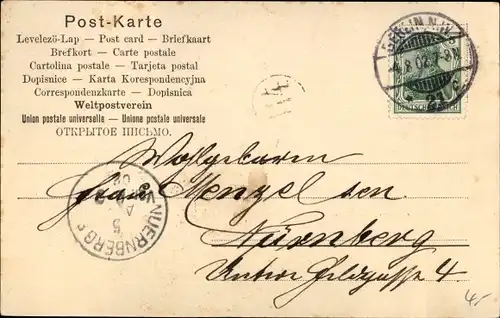 Post-Karte
Levelezö-Lap — Post card — Briefkaart
Brefkort — Carte postale
Cartolina postale — Tarjeta postal
Dopisnice — Karta Korespondencyjna
Correspondenzkarte — Dopisnica
Weltpostverein
Union postale universelle — Unione postale universale
ОТКРЫТОЕ ПИСЬМО.
BERLIN N.W.
Wohlgeboren
Frau Menzel sen.
Nürnberg
Untere Feldgasse 4.
NUERNBERG
5
4.-